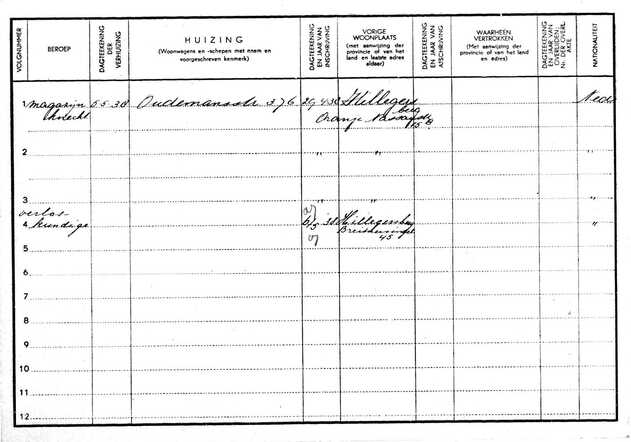 VOLGNUMMER
BEROEP
DAGTEEKENING DER VERHUIZING
HUIZING
(Woonwagens en -schepen met naam en
voorgeschreven kenmerk)
DAGTEEKENING EN JAAR VAN INSCHRIJVING
VORIGE
WOONPLAATS
(met aanwijzing der
provincie of van het
land en laatste adres
aldaar)
DAGTEEKENING EN JAAR VAN AFSCHRIJVING
WAARHEEN
VERTROKKEN
(Met aanwijzing der
provincie of van het land
en adres)
DAGTEEKENING EN JAAR VAN OVERLIJDEN; Nr. DER OVERL. AKTE
NATIONALITEIT
1 magazijn 5 5 38 Oudemansstr 376 29 4 38 Hillegers Nede
knecht berg
Oranje Nassaustr
15 B
2 " " "
3 " " "
verlos
4 kundige 4/5 38 Hillegersberg "
45
5
6
7
8
9
10
11
12